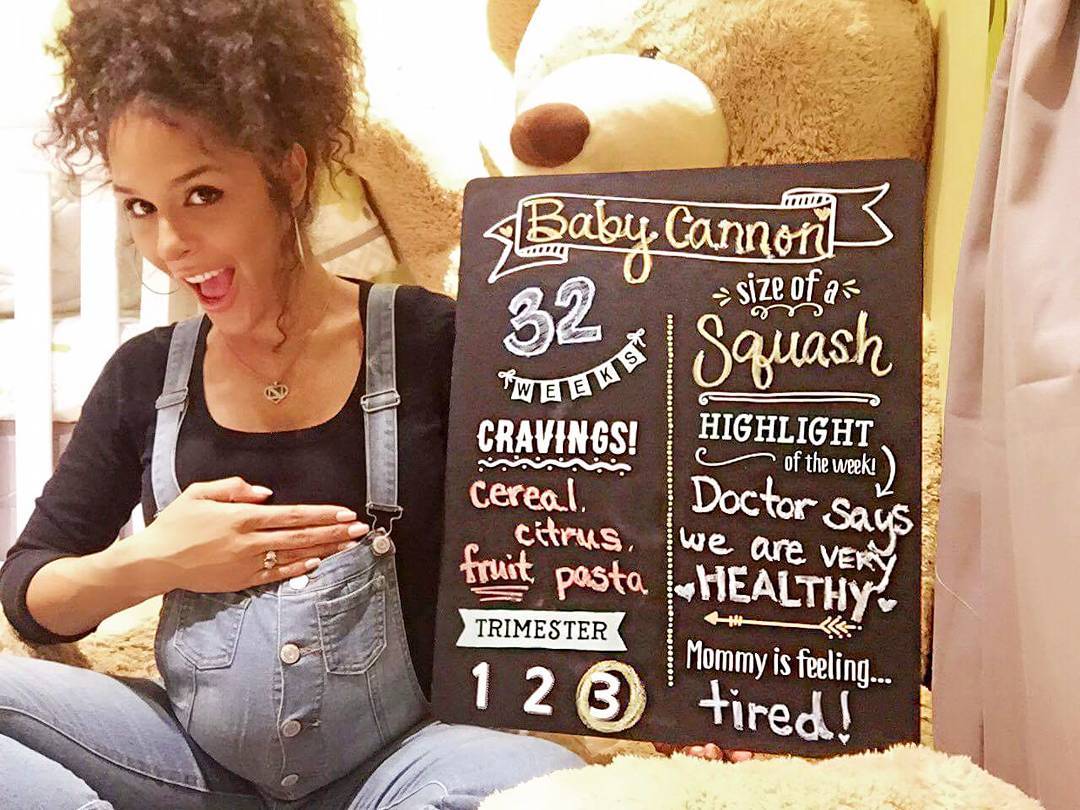 Baby Cannon
32
WEEKS
CRAVINGS!
cereal,
citrus,
fruit, pasta
TRIMESTER
1 2 3
size of a
Squash
HIGHLIGHT
of the week!
Doctor says
we are VERY
HEALTHY
Mommy is feeling...
tired!